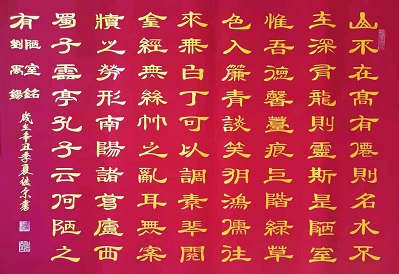 山不在高有僊則名水不
在深有龍則靈斯是陋室
惟吾德馨苔痕上階緑草
色入簾青談笑有鴻儒往
來無白丁可以調素琴閱
金經無絲竹之亂耳無案
牘之勞形南陽諸葛廬西
蜀子雲亭孔子云何陋之
有
陋室銘
劉禹錫
歲在辛丑季夏
書